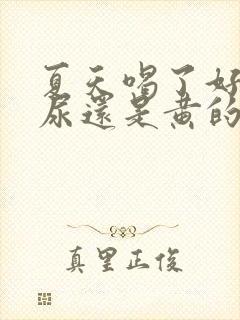 夏天喝了好
尿還是黄的
真里正俊